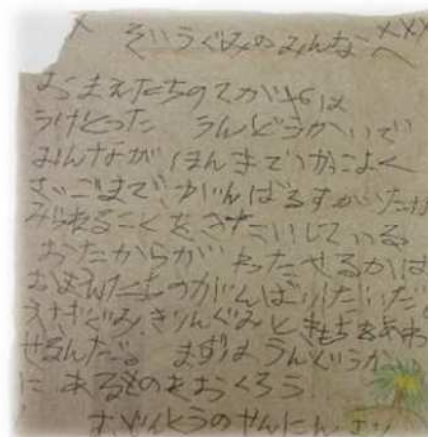 ぞうぐみのみんなへ
おまえたちのてがみは
うけとった うんどうかいで
みんなが ほんきでつなひく
さいごまで、がんばるすがたが
みられることをきたいしている
おたからが わたせるかは
おまえたちのがんばりしだいだ
うさぎぐみ、きりんぐみときもちをあわ
せるんだ。 まずはうんどうか
に あるものをおくろう
せんにんより